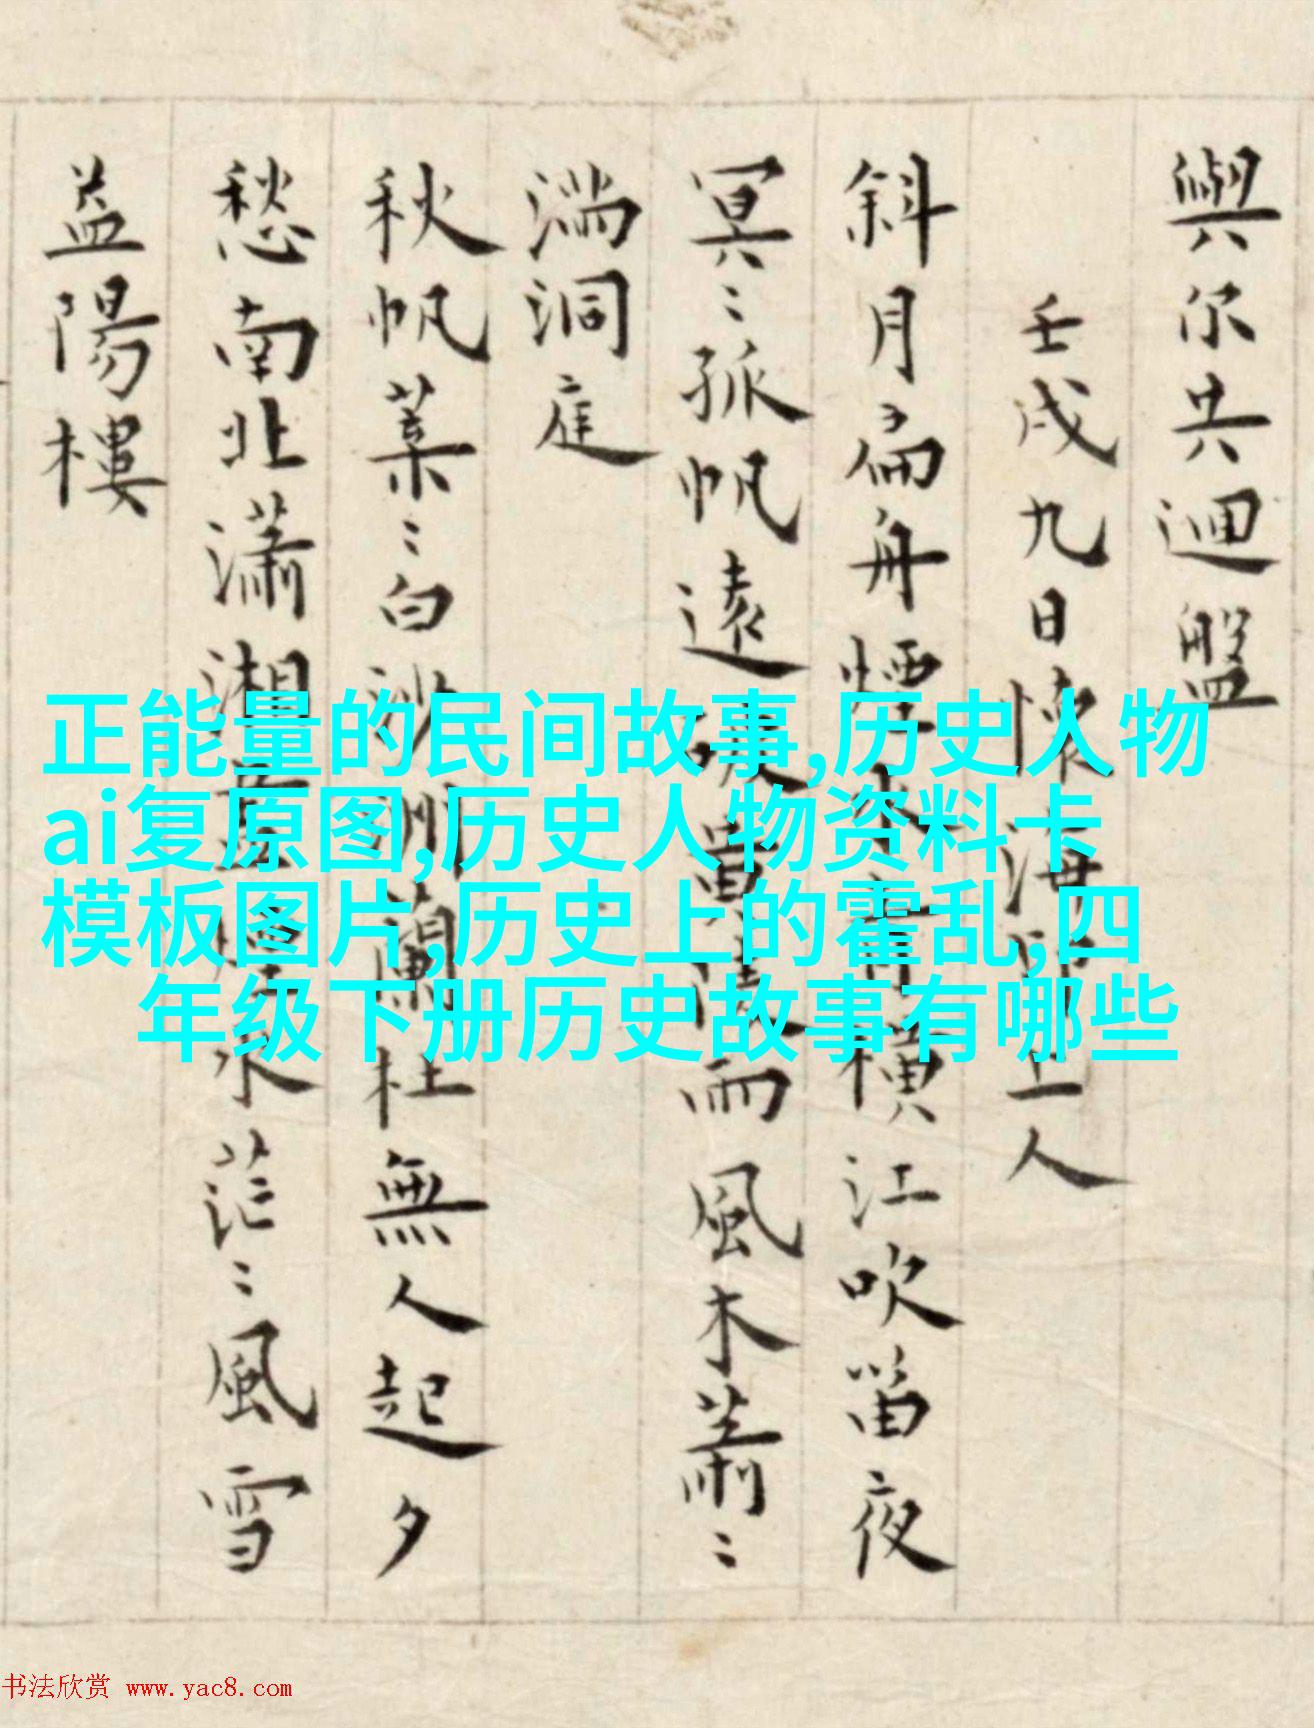 與尔共迴盤
壬戌九日懐海上人
斜月扁舟煙水青横江吹笛夜
冥〻孤帆遠黄陵雨風木蕭〻
湍洞庭
秋帆葉〻白沙洲蘭杜無人起夕
愁南北瀟湘水茫〻風雪
益陽樓
正能量的民间故事,历史人物
ai复原图,历史人物资料卡
模板图片,历史上的霍乱,四
年级下册历史故事有哪些
书法欣赏 www.yac8.com